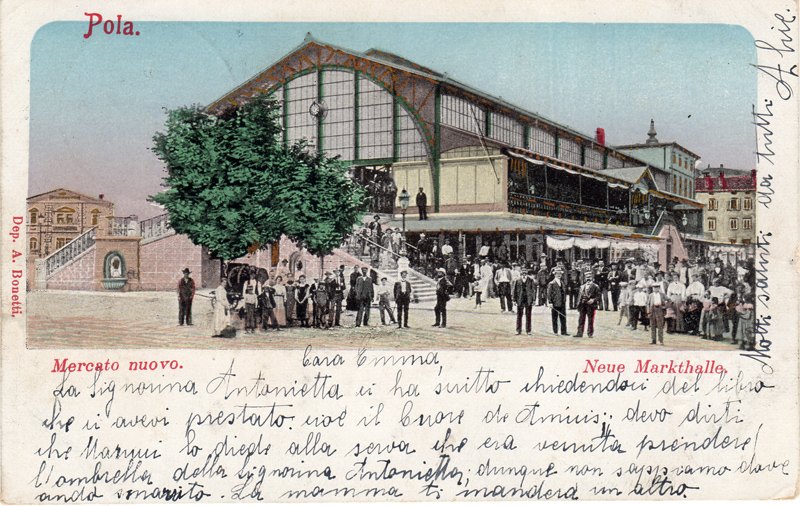 Pola.
Dep. A. Bonetti.
Mercato nuovo.
Neue Markthalle.
Cara Emma,
La Signorina Antonietta ci ha scritto chiedendoci del libro
che ci avevi prestato: cioè il Cuore de Amicis; devo dirti
che lo diede alla serva che era venuta prendere
l'ombrella della Signorina Antonietta, dunque non sappiamo dove
andò smarrito. La mamma ti manderà un altro.
Molti saluti da tutti